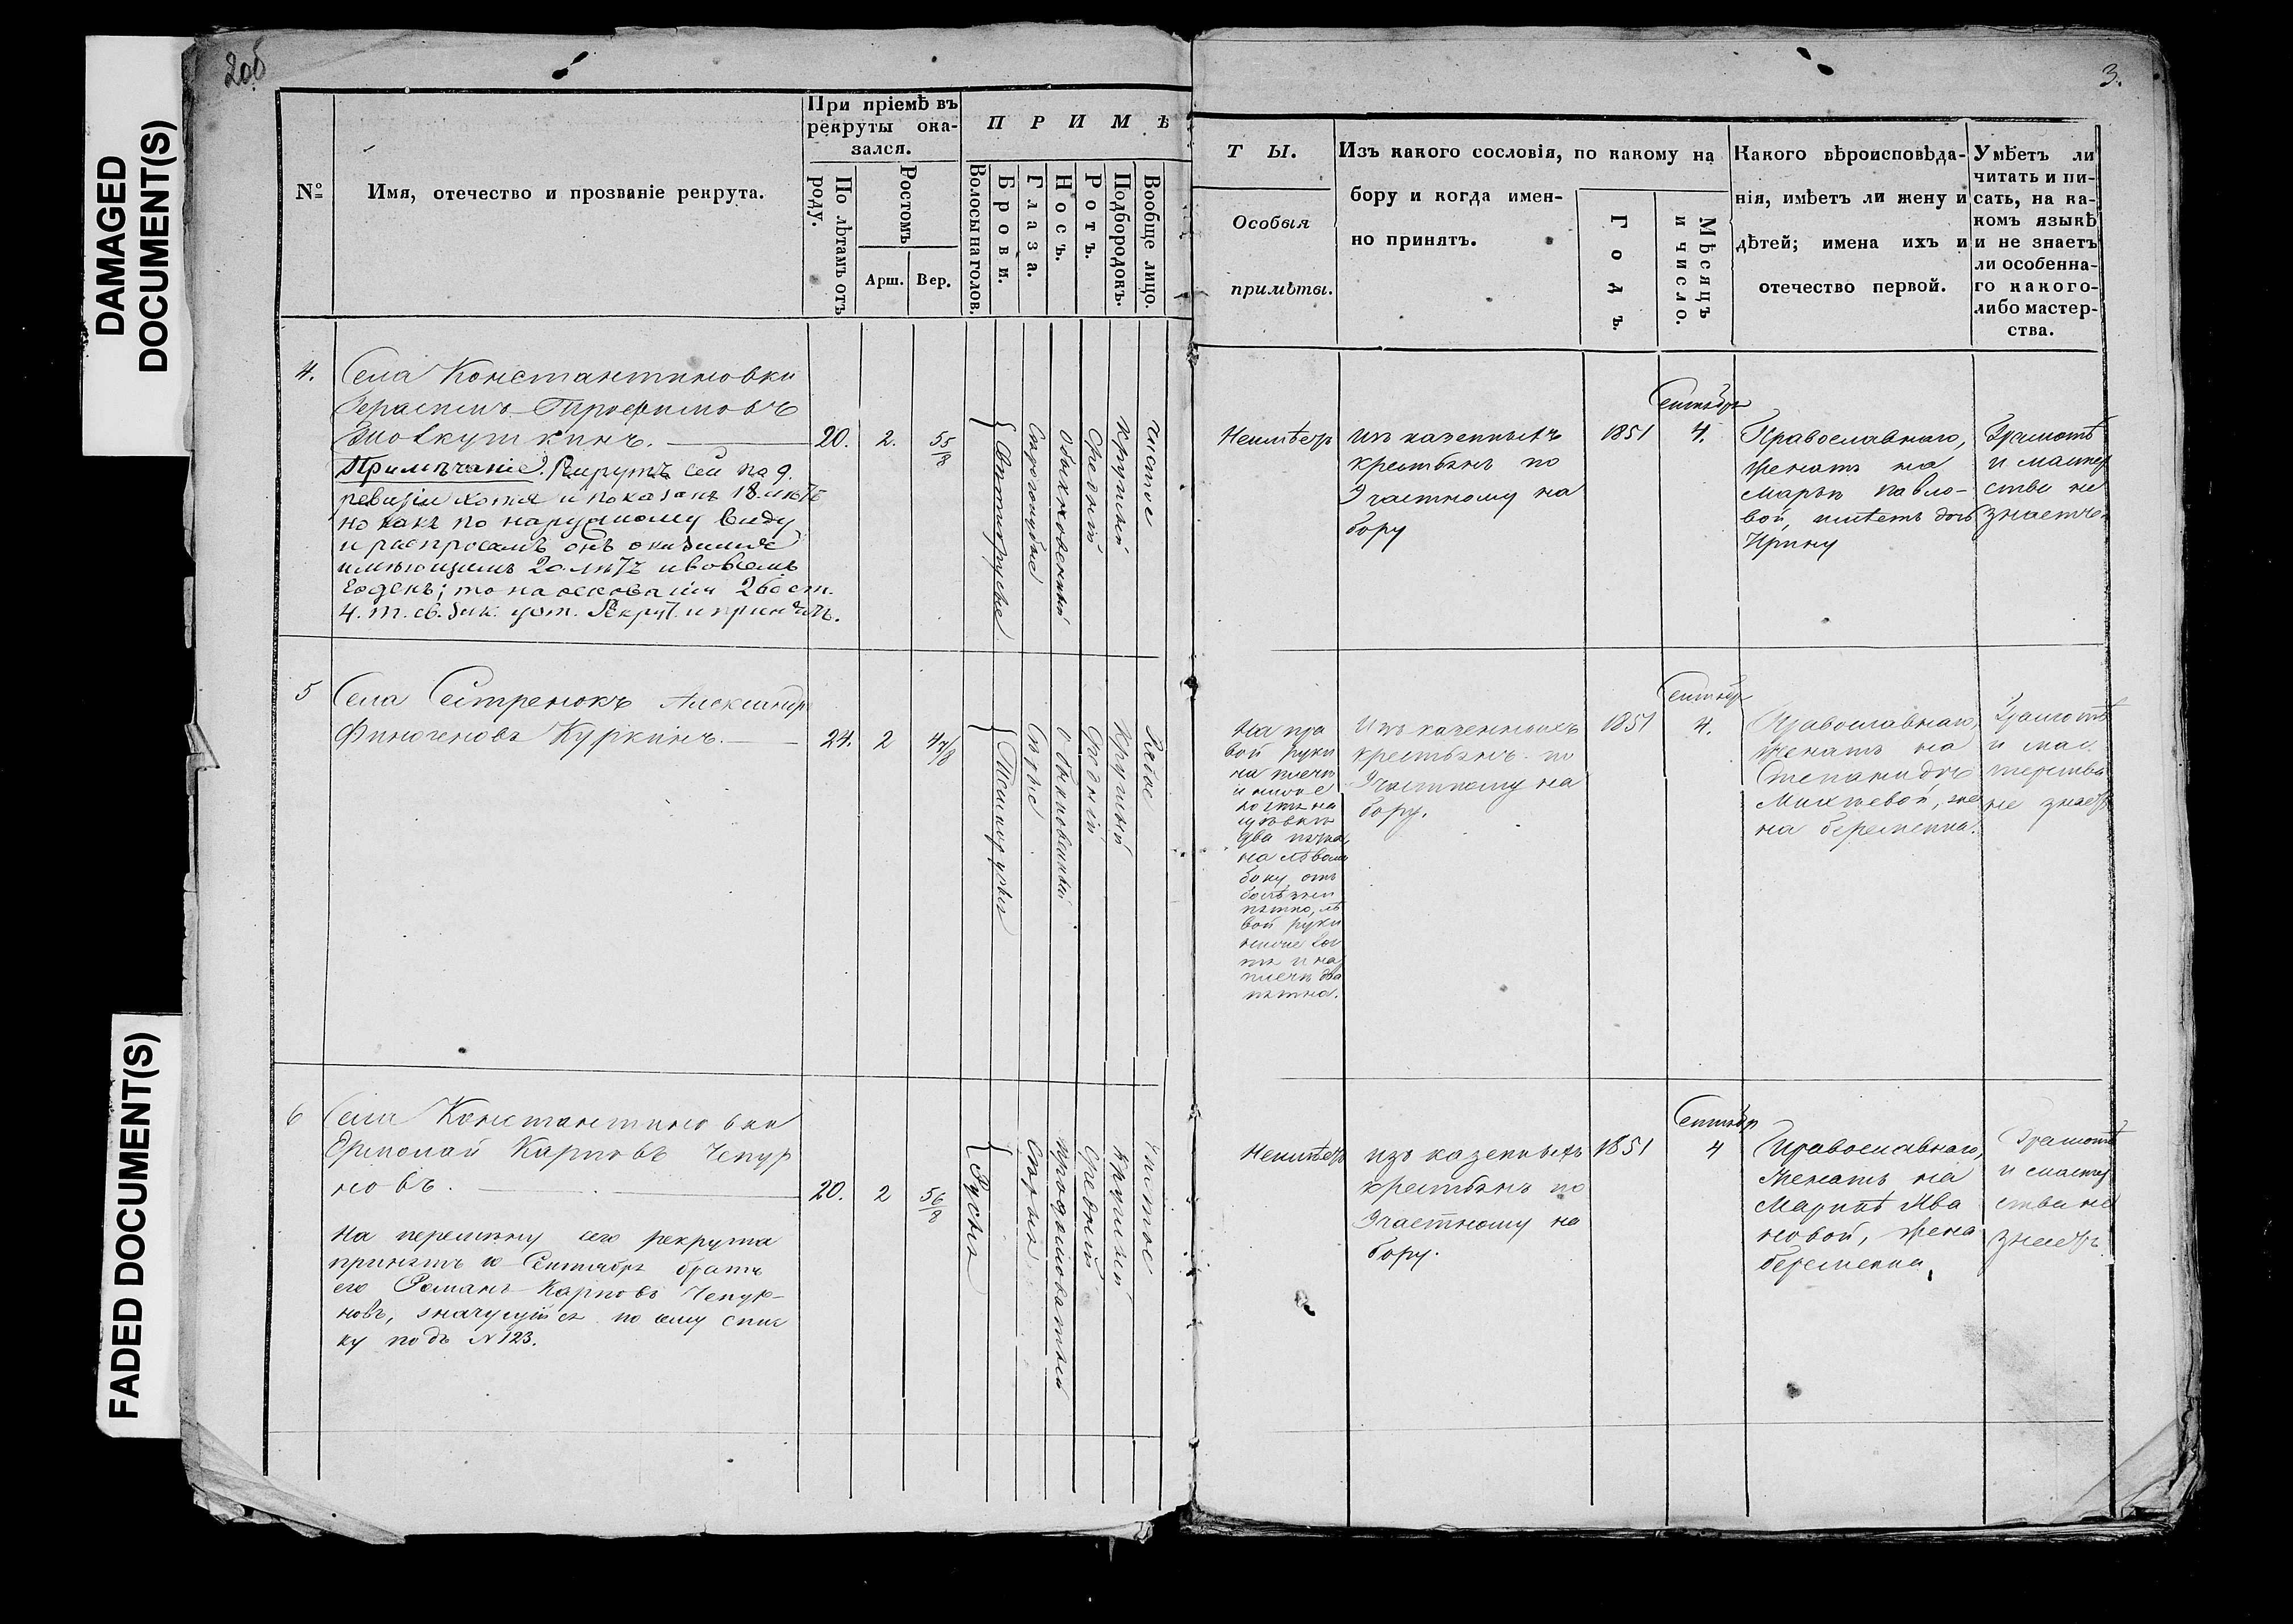 DAMAGED
DOCUMENT(S)
FADED DOCUMENT(S)
2об
3.
№
Имя, отечество и прозваніе рекрута.
При пріемѣ въ
рекруты ока-
зался.
По лѣтамъ отъ
роду.
Ростомъ
Арш.
Вер.
П Р И М Ѣ
Волосы на голов.
Брови.
Глаза.
Носъ.
Ротъ.
Подбородокъ.
Вообще лицо.
Т Ы.
Особыя
примѣты.
Изъ какого сословія, по какому на
бору и когда имен-
но принятъ.
Годъ.
Мѣсяцъ
и число.
Какого вѣроисповѣда-
нія, имѣетъ ли жену и
дѣтей; имена ихъ и
отечество первой.
Умѣетъ ли
читать и пи-
сать, на ка-
комъ языкѣ
и не знаетъ
ли особенна-
го какого-
либо мастер-
ства.
4.
Села Константиновки
Герасимъ Трофимовъ
20.
2.
5 5/8
Примѣчаніе. Рекрутъ сей по 9.
ревизіи хотя и показанъ 18 лѣтъ
но какъ по наружному виду
и распросамъ онъ оказался
имѣющимъ 20 лѣтъ и во всемъ
годенъ; то на основаніи 260 ст.
4. т. св. зак. уст. Рекрут. и принятъ.
Свѣтлорусые
Сѣроголубые
Обыкновенный
Средній
Круглый
Чистое
Неимѣетъ
изъ казенныхъ
крестьянъ по
Участному на
бору
1851
Сентября
4.
Православнаго,
женатъ на
Марьѣ Павло-
вой, имѣетъ дочь
Ирину
Грамотѣ
и мастер
ства не
знаетъ.
5
Села Сестренокъ Александръ
Финогеновъ Куркинъ.
24.
2
4 7/8
Темнорусыя
Сѣрые
Обыкновенный
Средній
Круглый
Рябое
На пра
вой руки
на плечѣ
и ниже
локтя на
два пятна,
на лѣвомъ
боку отъ
болѣзни
пятно, лѣ
вой руки
ниже лок
тя и на
плечѣ два
пятна.
Изъ казенныхъ
крестьянъ по
Участному на
бору.
1851
Сентября
4.
Православнаго,
женатъ на
Степанидѣ
Михѣевой, же
на беременна.
Грамотѣ
и мас
терства
не знаетъ
6
Села Константиновки
Ермолай Карповъ Чепур
новъ.
20.
2
5 6/8
На перемѣну сего рекрута
принятъ 10 Сентября братъ
его Романъ Карповъ Чепур-
новъ, значущійся по сему спис
ку подъ № 123.
Русыя
Сѣрыя
Продолговатый
Средній
Круглый
Чистое
Неимѣетъ
изъ казенныхъ
крестьянъ по
Участному на
бору.
1851
Сентября
4
Православнаго,
женатъ на
Маринѣ Ива
новой, жена
беременна.
Грамотѣ
и мастер
ства не
знаетъ.